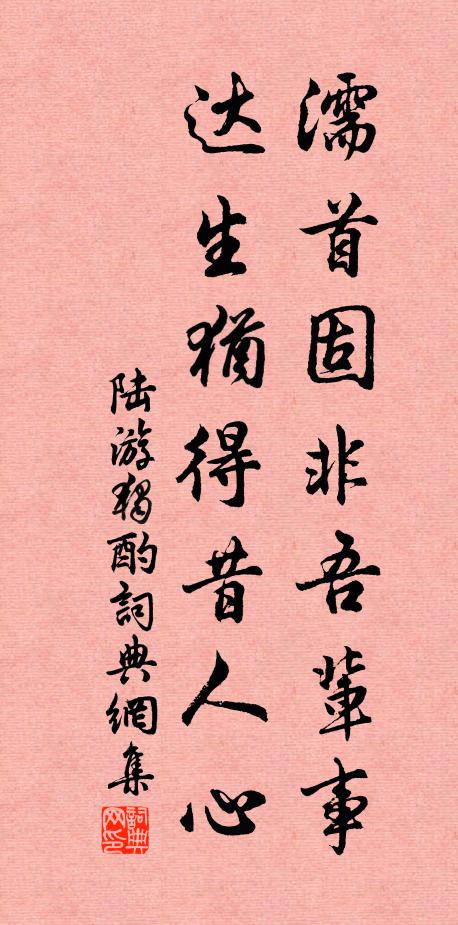 濡首固非吾軰事
达生猶得昔人心
陆游獨酌詞典網集
詞典网印